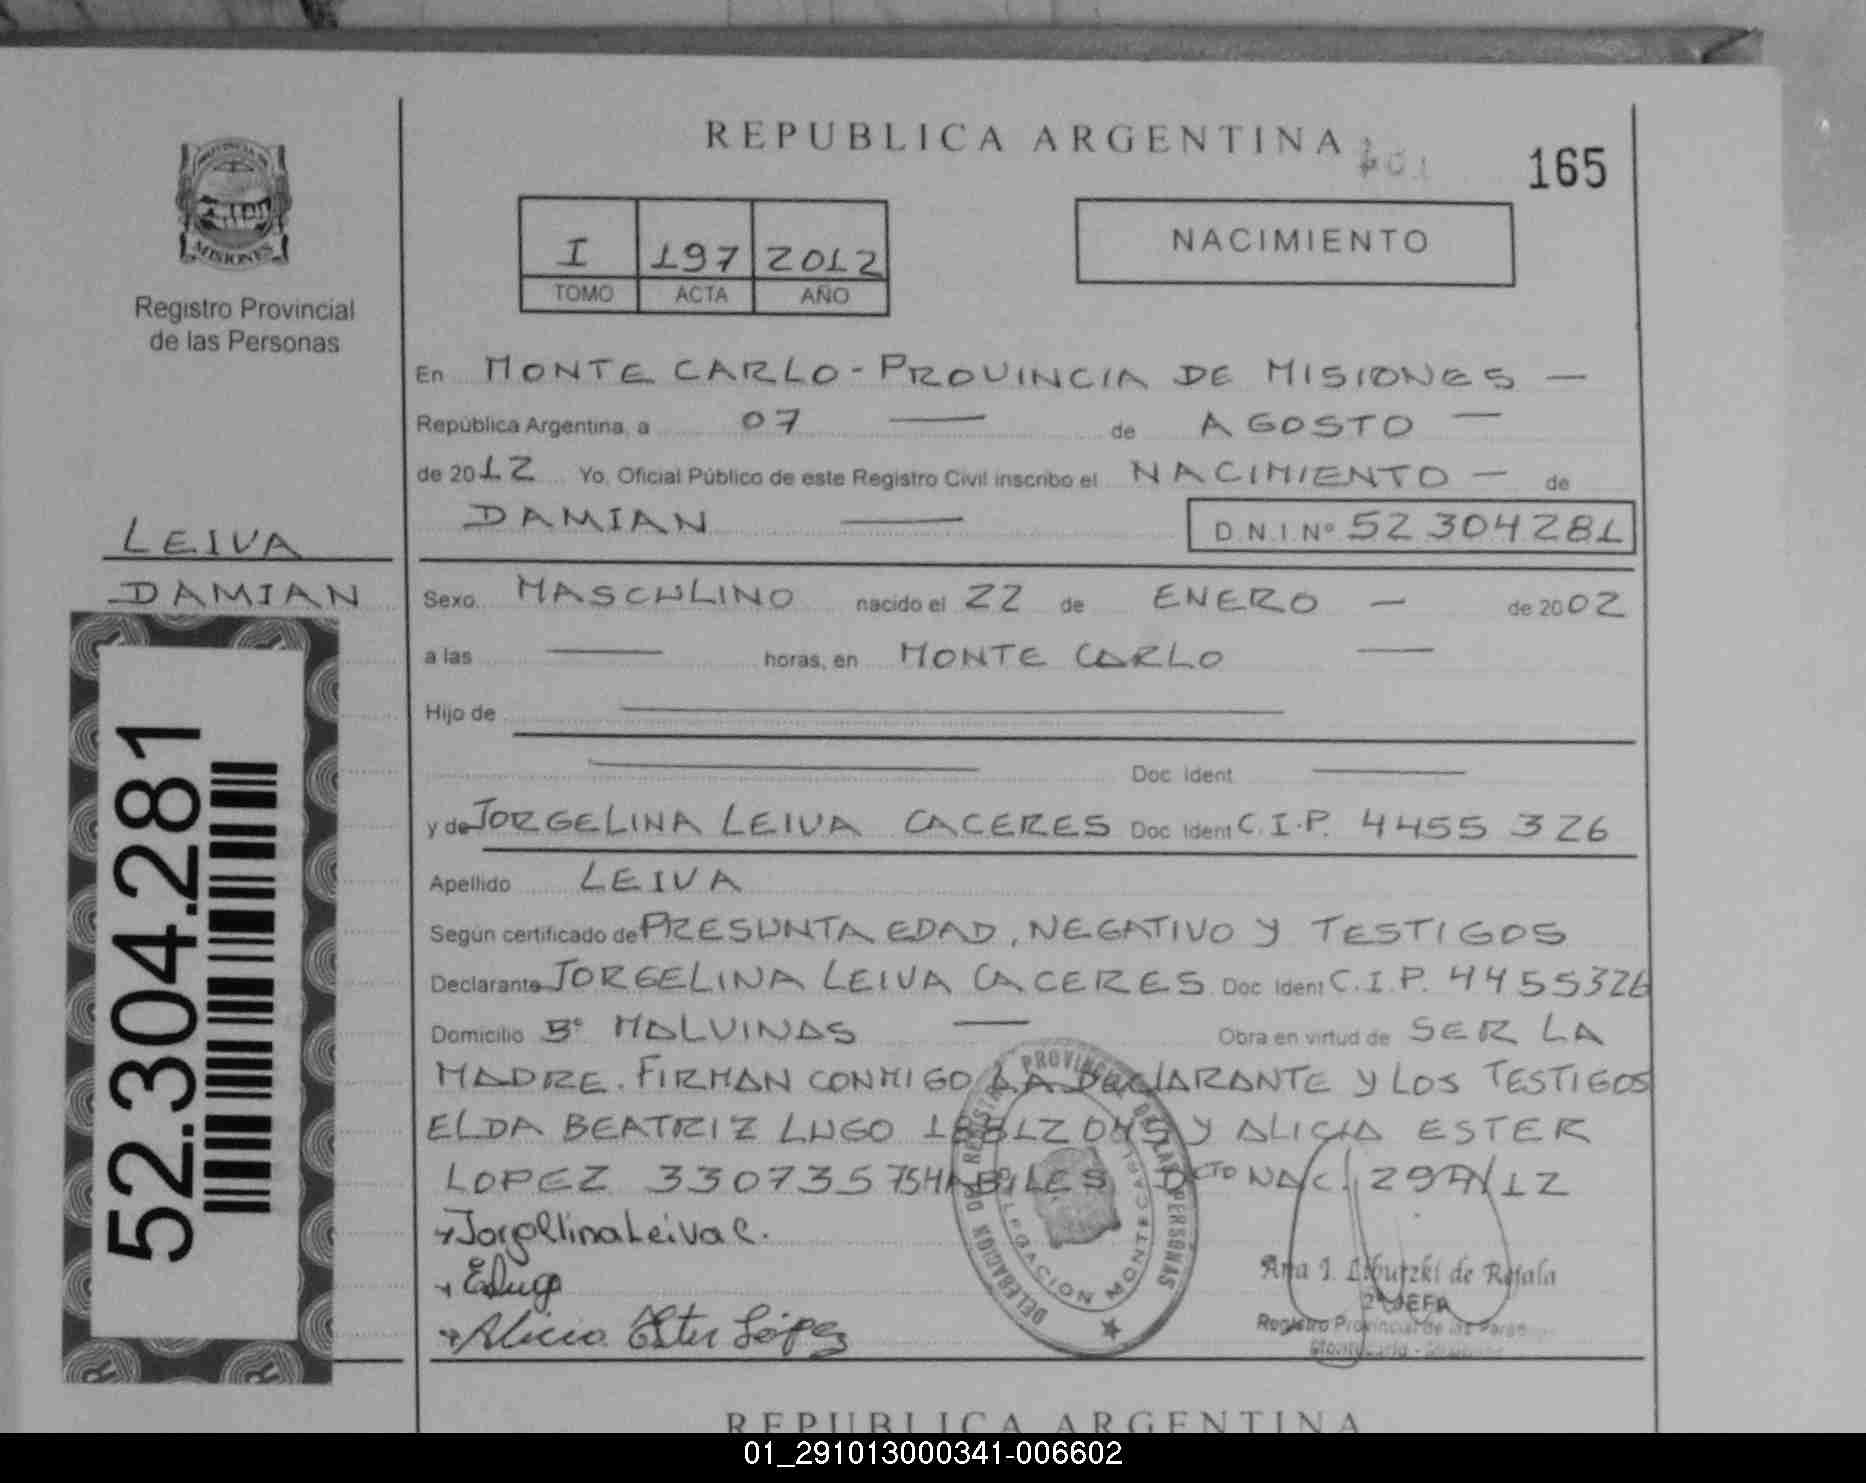 REPUBLICA ARGENTINA
165
PROVINCIA DE
MISIONES
Registro Provincial
de las Personas
I 197 2012
TOMO ACTA AÑO
NACIMIENTO
En MONTE CARLO - PROVINCIA DE MISIONES —
República Argentina, a 07 — de AGOSTO —
de 2012 Yo, Oficial Público de este Registro Civil inscribo el NACIMIENTO — de
DAMIAN — D.N.I. Nº 52 304281
LEIVA
DAMIAN
Sexo MASCULINO nacido el 22 de ENERO — de 2002
a las — horas, en MONTE CARLO —
Hijo de —
— Doc Ident —
y de JORGELINA LEIVA CACERES Doc Ident C.I.P. 4455 326
Apellido LEIVA
Según certificado de PRESUNTA EDAD, NEGATIVO Y TESTIGOS
Declarante JORGELINA LEIVA CACERES Doc Ident C.I.P. 4455326
Domicilio Bº MALVINAS — Obra en virtud de SER LA
MADRE. FIRMAN CONMIGO LA DECLARANTE Y LOS TESTIGOS
ELDA BEATRIZ LUGO Y ALICIA ESTER
LOPEZ HABILES DCTO NAC. /12
Jorgelina Leiva C.
ELugo
Alicia Ester López
DELEGACION MONTECARLO
Ana I. de Rejala
2º JEFA
Registro Provincial de las Personas
52.304.281
REPUBLICA ARGENTINA
01_291013000341-006602